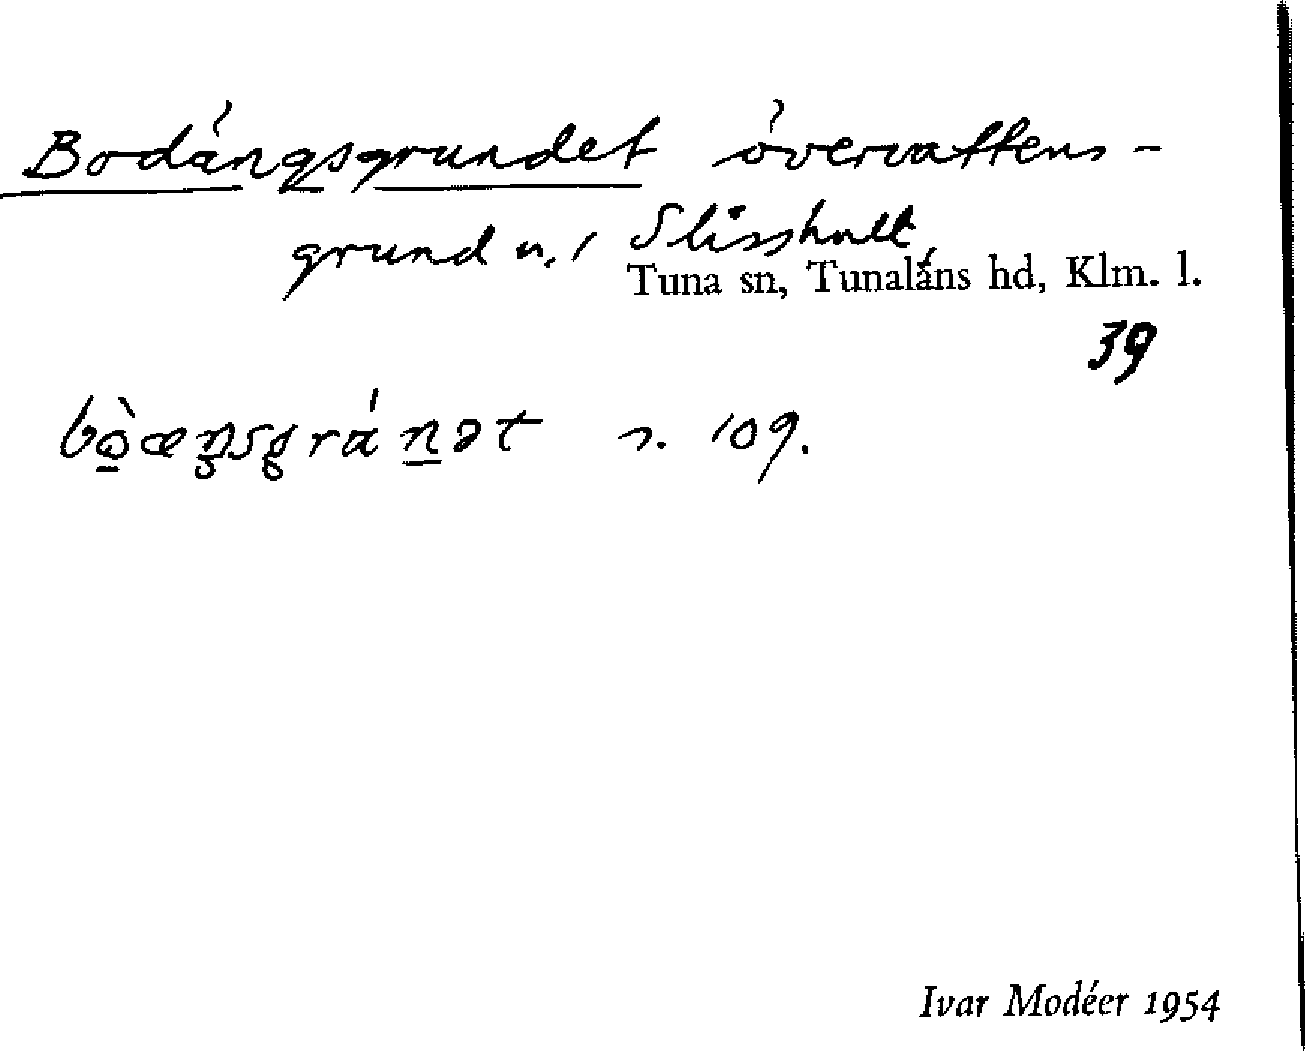 Bodängsgrundet övervattens-
grund n. / Slisshult,
Tuna sn, Tunaläns hd, Klm. l.
39
s. 109.
Ivar Modéer 1954